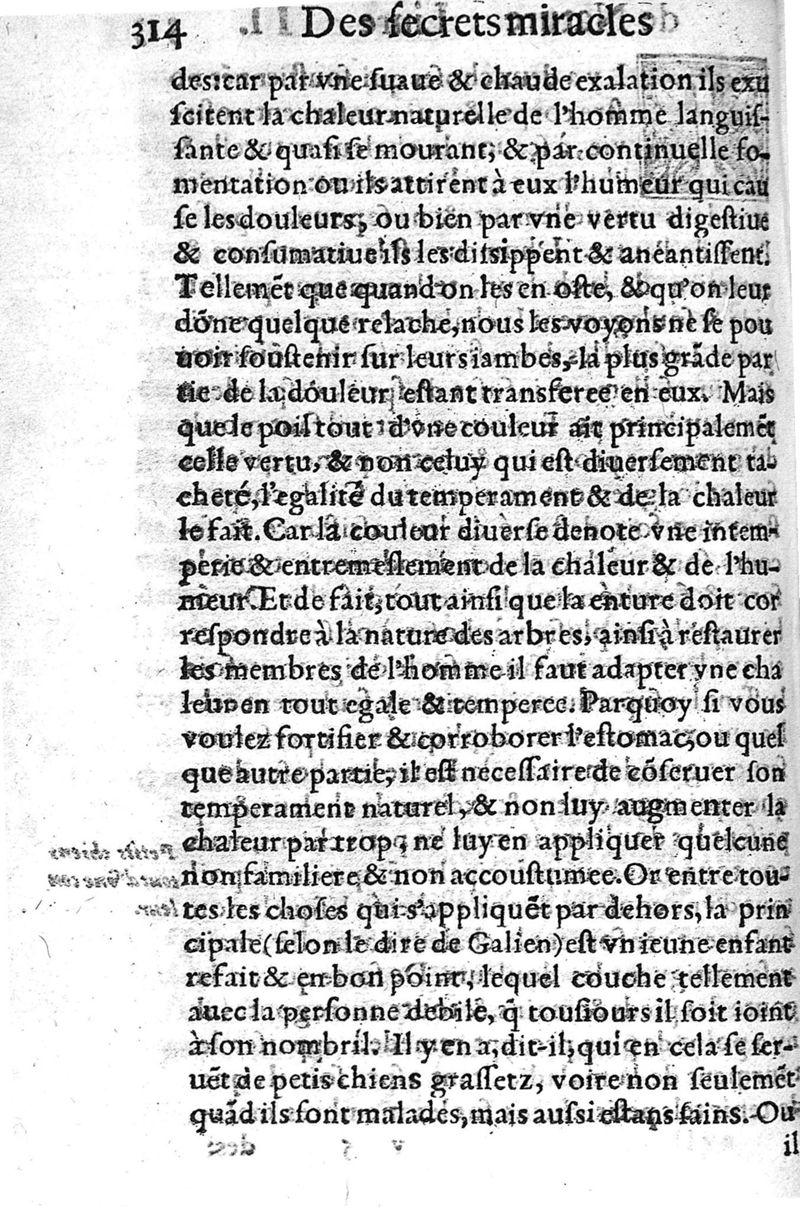 314 Des ſecrets miracles
des: car par vne ſuaue & chaude exalation ils exu
ſcitent la chaleur naturelle de l'homme languiſ-
ſante & quaſi ſe mourant, & par continuelle fo-
mentation ou ils attirent à eux l'humeur qui cau
ſe les douleurs, ou bien par vne vertu digeſtiue
& conſumatiue ils les diſsippent & aneantiſſent.
Tellemẽt que quand on les en oſte, & qu'on leur
dõne quelque relache, nous les voyons ne ſe pou
uoir ſouſtenir ſur leurs iambes, la plus grãde par
tie de la douleur eſtant transferee en eux. Mais
que le poil tout d'vne couleur ait principalemẽt
celle vertu, & non celuy qui eſt diuerſement ta-
cheté, l'egalité du temperament & de la chaleur
le fait. Car la couleur diuerſe denote vne intem-
perie & entremeſlement de la chaleur & de l'hu-
meur. Et de fait, tout ainſi que la enture doit cor
reſpondre à la nature des arbres, ainſi à reſtaurer
les membres de l'homme il faut adapter vne cha
leur en tout egale & temperee. Parquoy ſi vous
voulez fortifier & corroborer l'eſtomac, ou quel
que autre partie, il eſt neceſſaire de cõſeruer ſon
temperament naturel, & non luy augmenter la
chaleur par trop, ne luy en appliquer quelcune
non familiere, & non accouſtumee. Or entre tou-
tes les choſes qui s'appliquẽt par dehors, la prin
cipale (ſelon le dire de Galien) eſt vn ieune enfant
refait & en bon point, lequel couche tellement
auec la perſonne debile, q̃ touſiours il ſoit ioint
à ſon nombril. Il y en a, dit-il, qui en cela ſe ſer-
uẽt de petis chiens graſſetz, voire non ſeulemẽt
quãd ils ſont malades, mais auſsi eſtans ſains. Ou
il